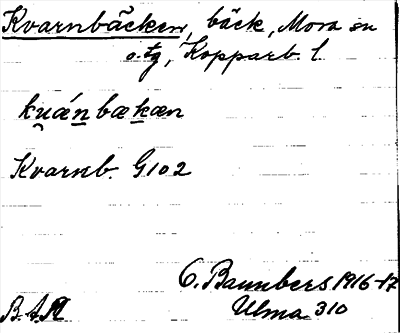 Kvarnbäcken, bäck, Mora sn
o. tg, Kopparb. l.
ku̯ánbækæn
Kvarnb. G102
C. Baunbers 1916-17
Ulma 310